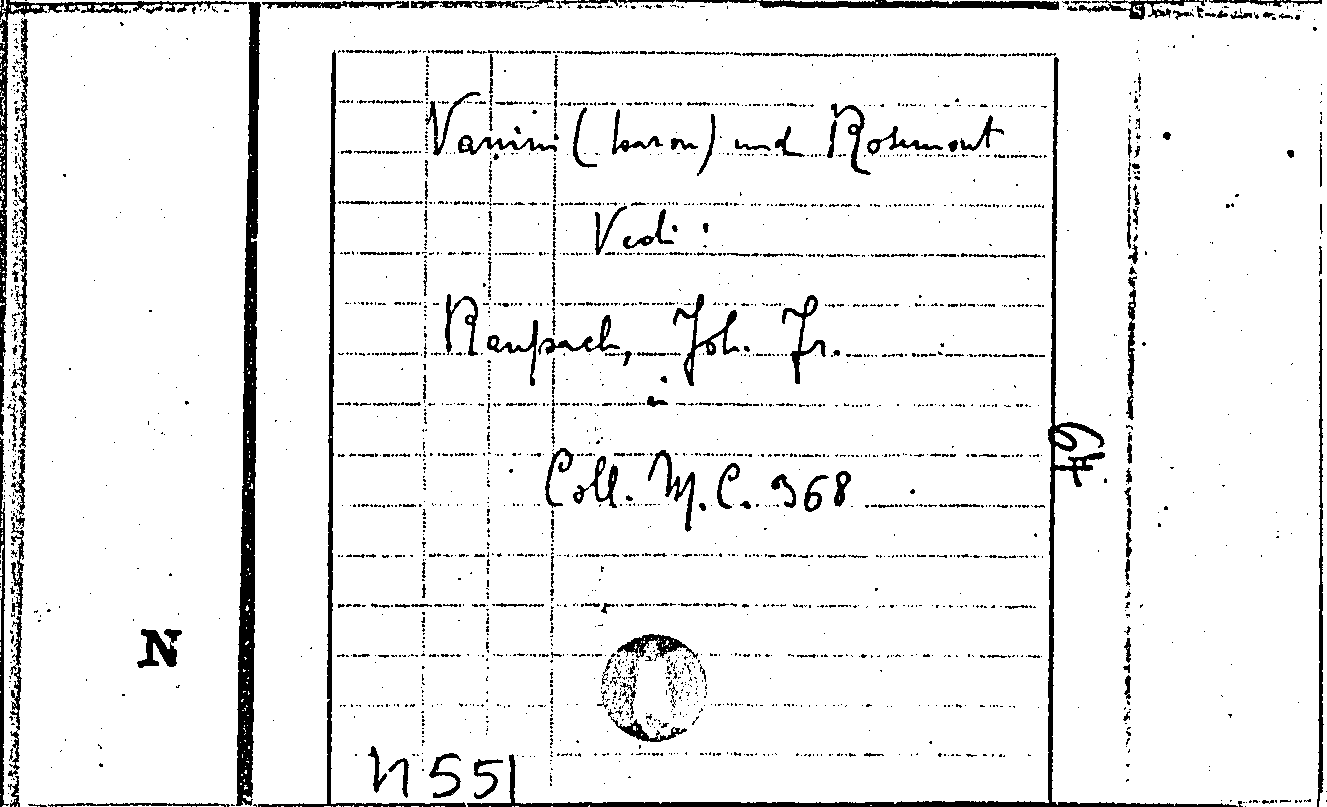 Vanini (baron) und Rosemont
Vedi:
Raupach, Joh. Fr.
in
Coll. M.C. 368
64
N
N 551